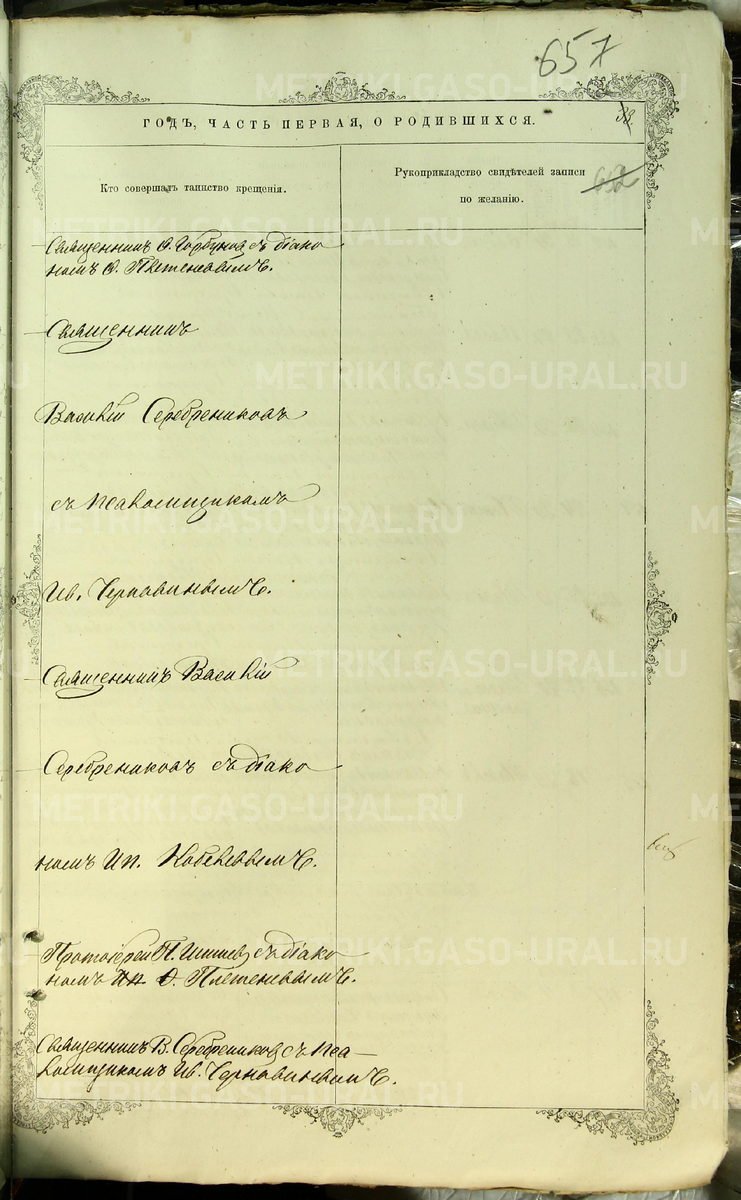 657
ГОДЪ, ЧАСТЬ ПЕРВАЯ, О РОДИВШИХСЯ.
Кто совершалъ таинство крещенія.
Рукоприкладство свидѣтелей записи
по желанію.
652
Священникъ Ѳ. Горбуновъ съ діако
номъ Ѳ. Плетеневымъ.
Священникъ
Василій Серебрениковъ
съ псаломщикомъ
Ив. Чернавинымъ.
Священникъ Василій
Серебрениковъ съ діако
номъ Ип. Кобелевымъ.
Протоіерей П. съ діако
номъ Ип Ѳ. Плетеневымъ.
Священникъ В. Серебрениковъ съ пса-
ломщикомъ Ив. Чернавинымъ.
METRIKI.GASO-URAL.RU